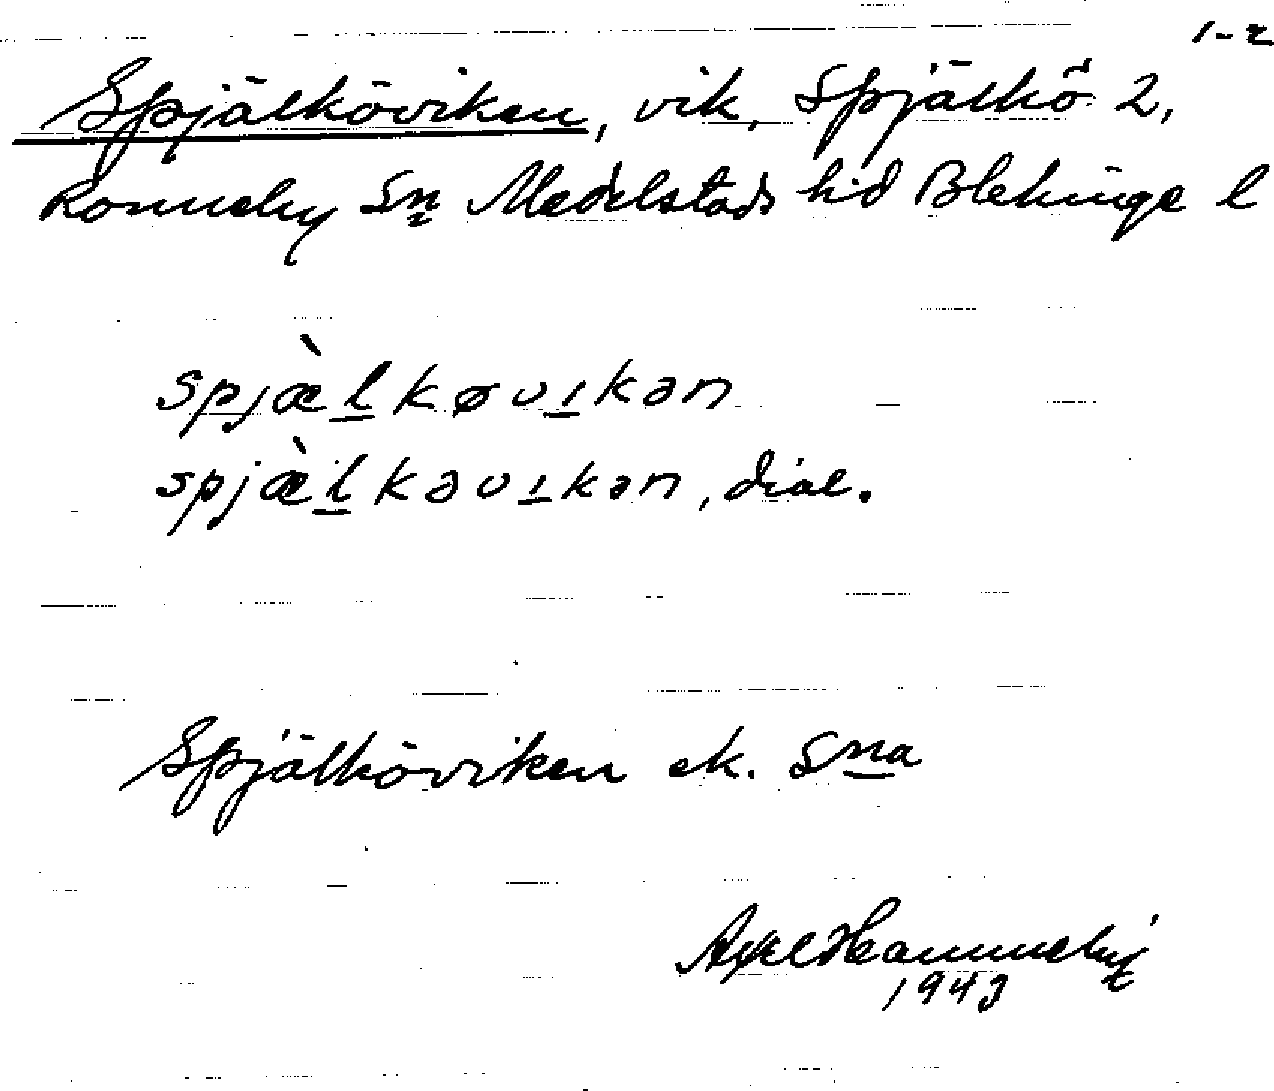 1-2
Spjälköviken, vik, Spjälkö 2,
Ronneby Sn Medelstads hd Blekinge l
spjæ̀l̲køvı̲kən
spjæ̀l̲kəvı̲kən, dial.
Spjälköviken ek. Sna
Axel Hammeby
1943